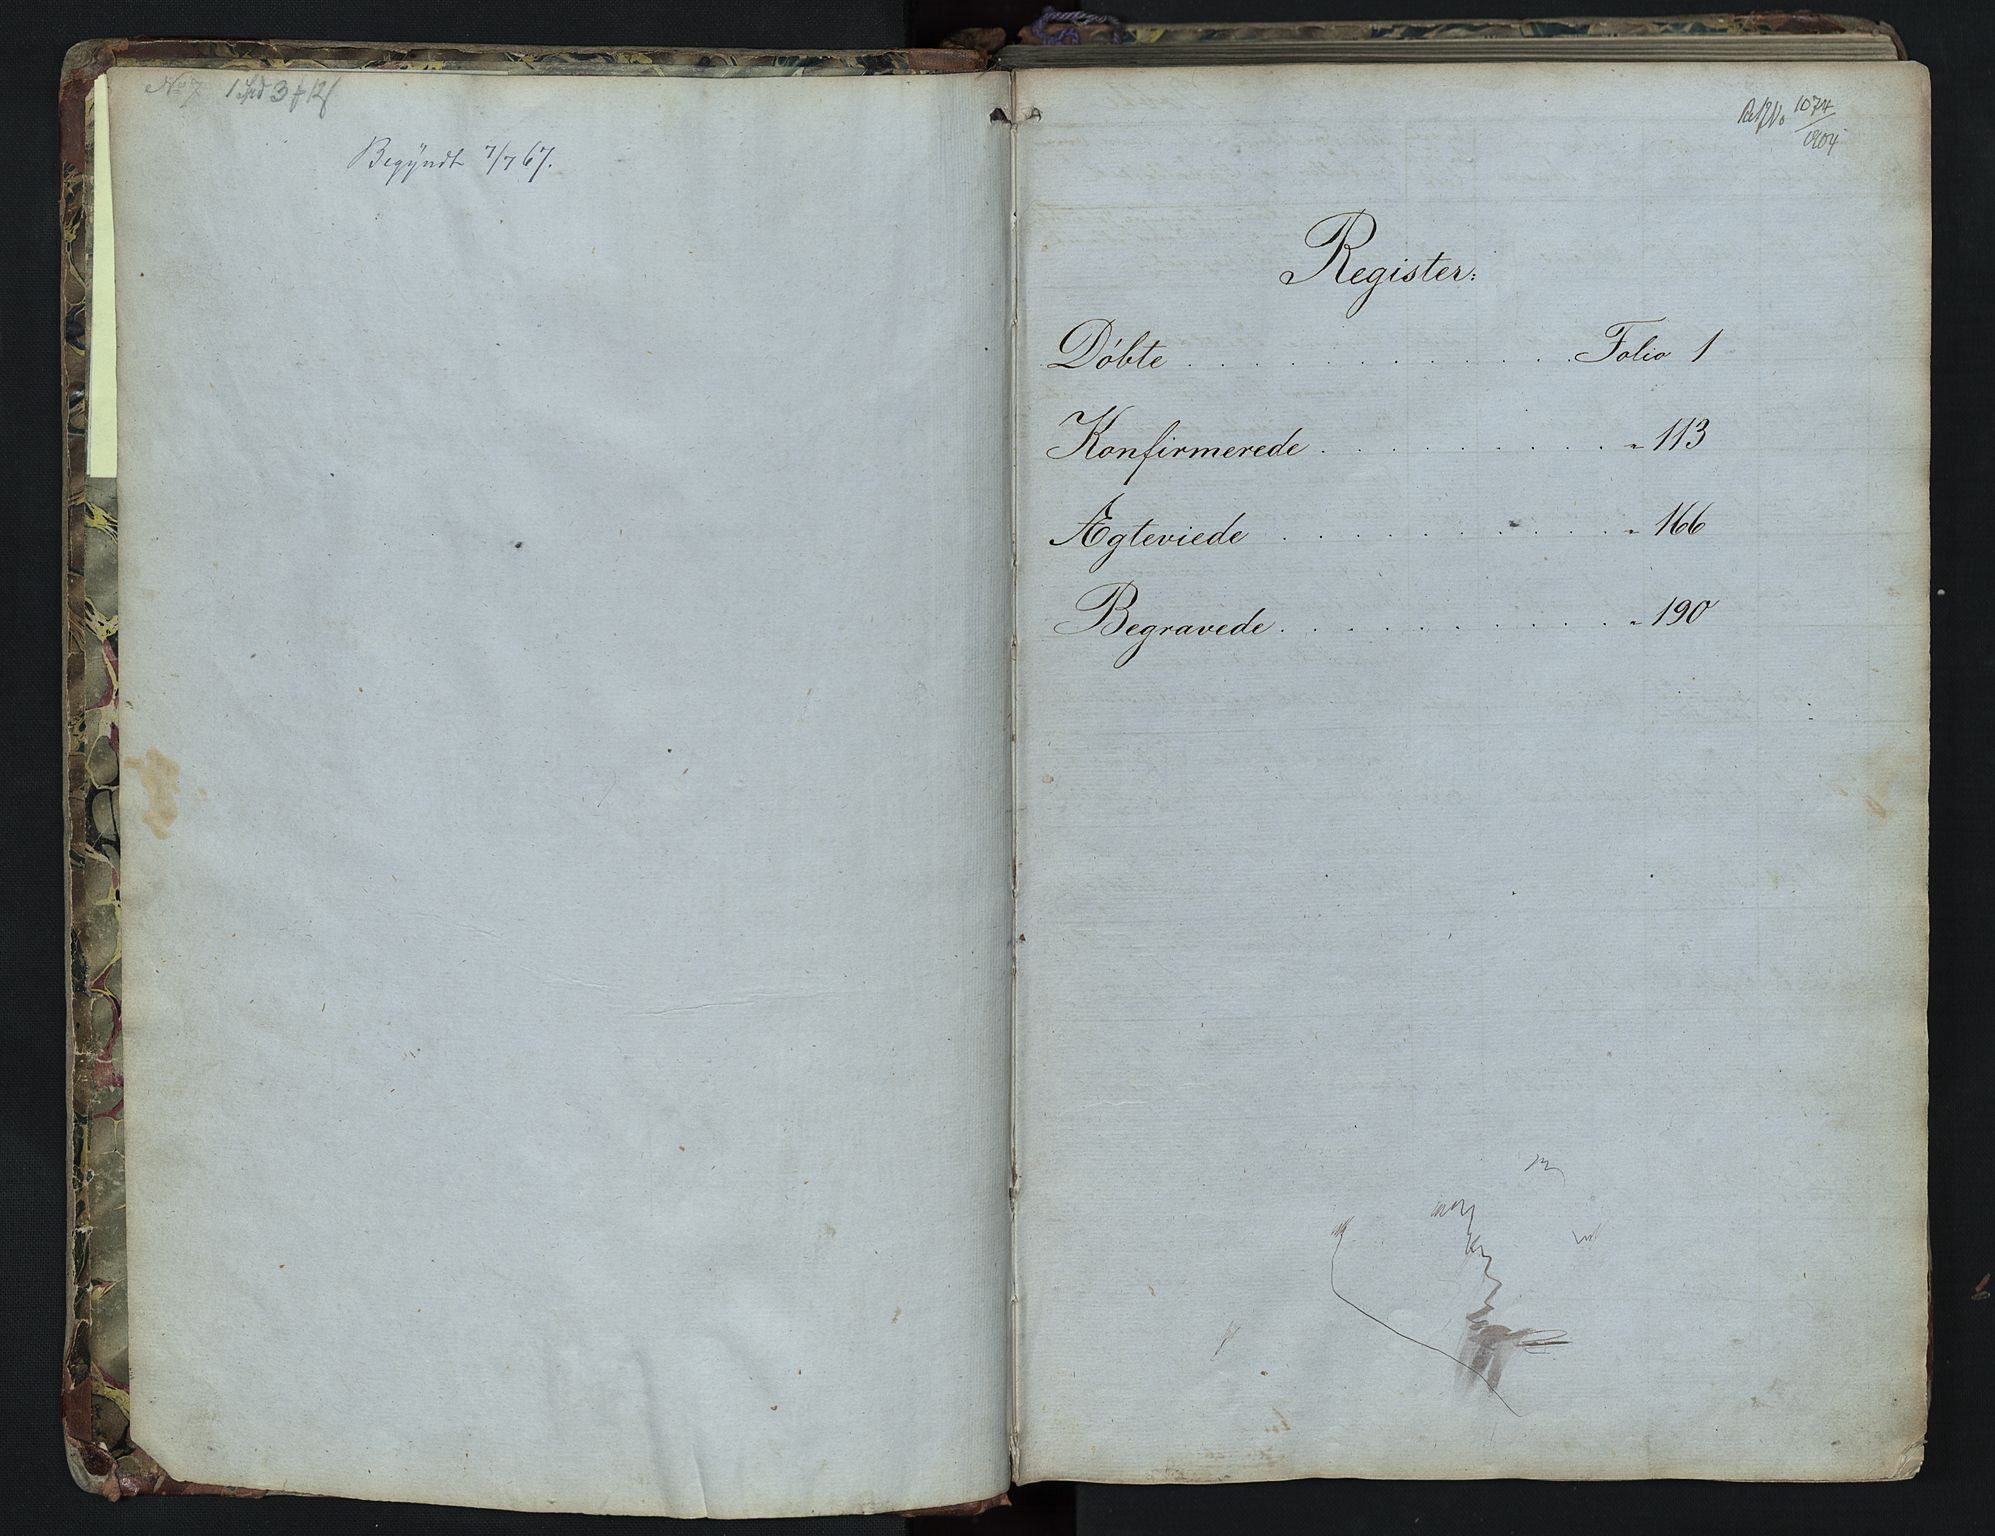 No 7 1 Spd 3 # 12 ſ
Begyndt 7/7 67.
1074/1904
Register:
Döbte . . . . . . . . . . . Folio 1
Konfirmerede . . . . . . . . . . „ 113
Ægteviede . . . . . . . . . . . „ 166
Begravede . . . . . . . . . . . „ 190